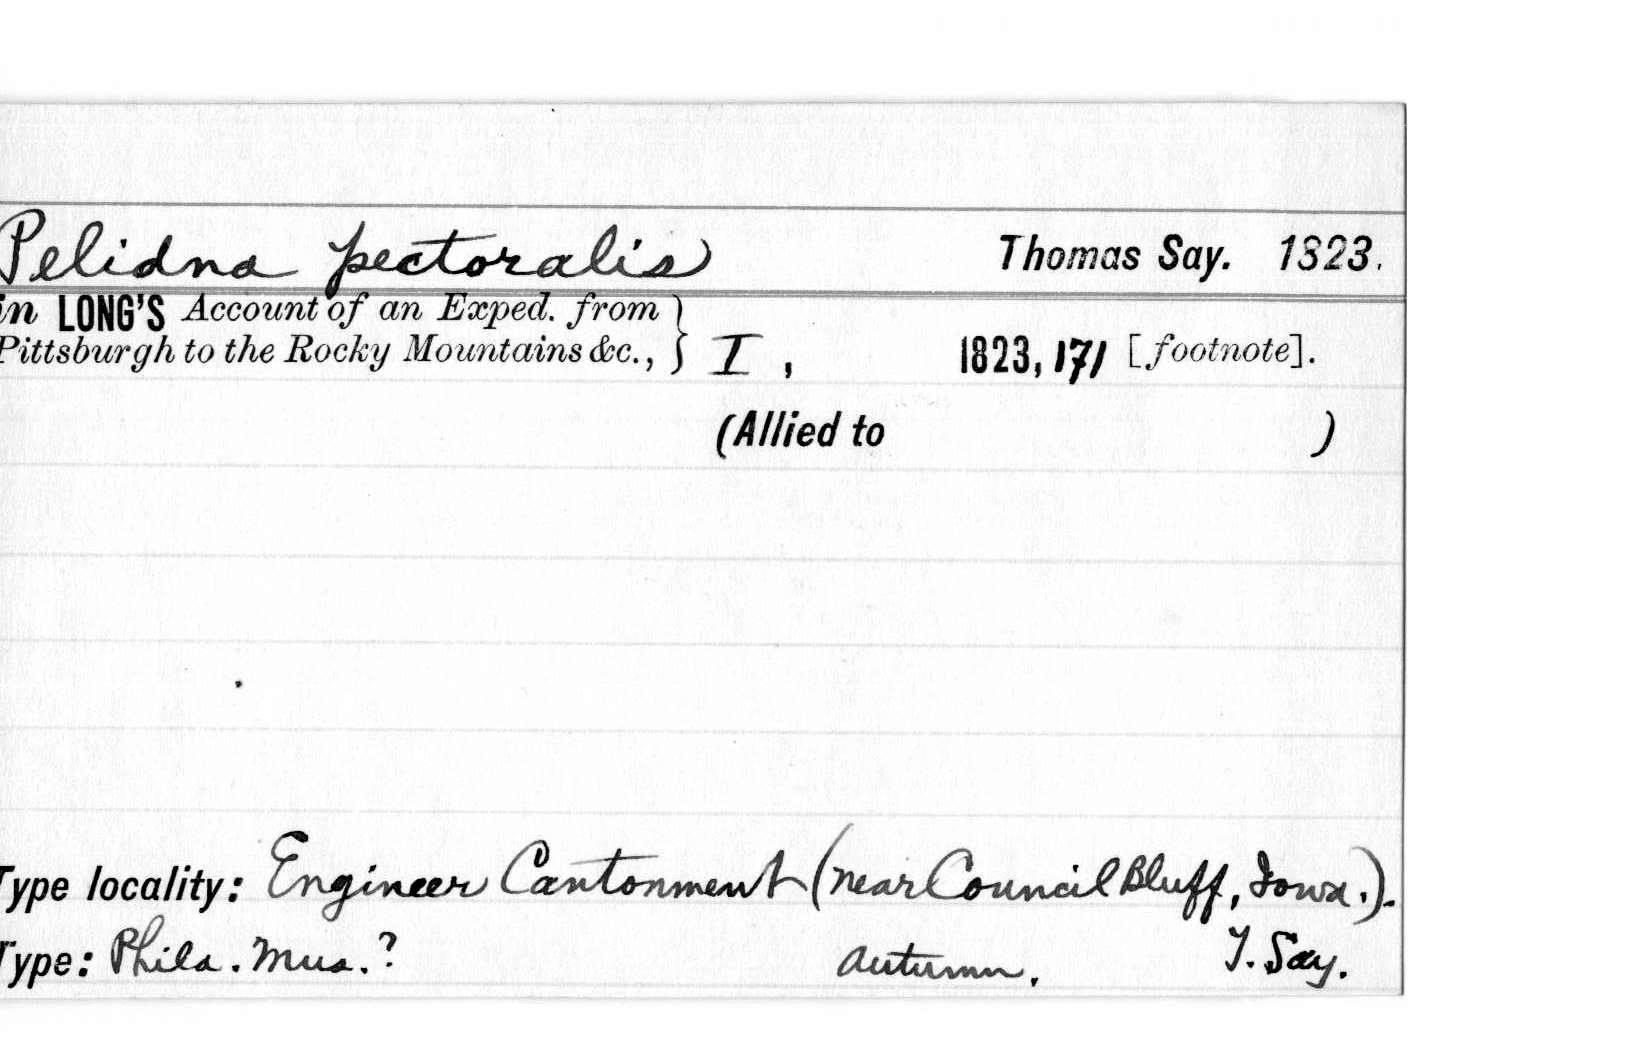 Pelidna pectoralis Thomas Say. 1823.
in LONG'S Account of an Exped. from
Pittsburgh to the Rocky Mountains &c., } I, 1823, 171 [footnote].
(Allied to )
Type locality: Engineer Cantonment (near Council Bluff, Iowa.).
Type: Phila. Mus.? autumn. T. Say.